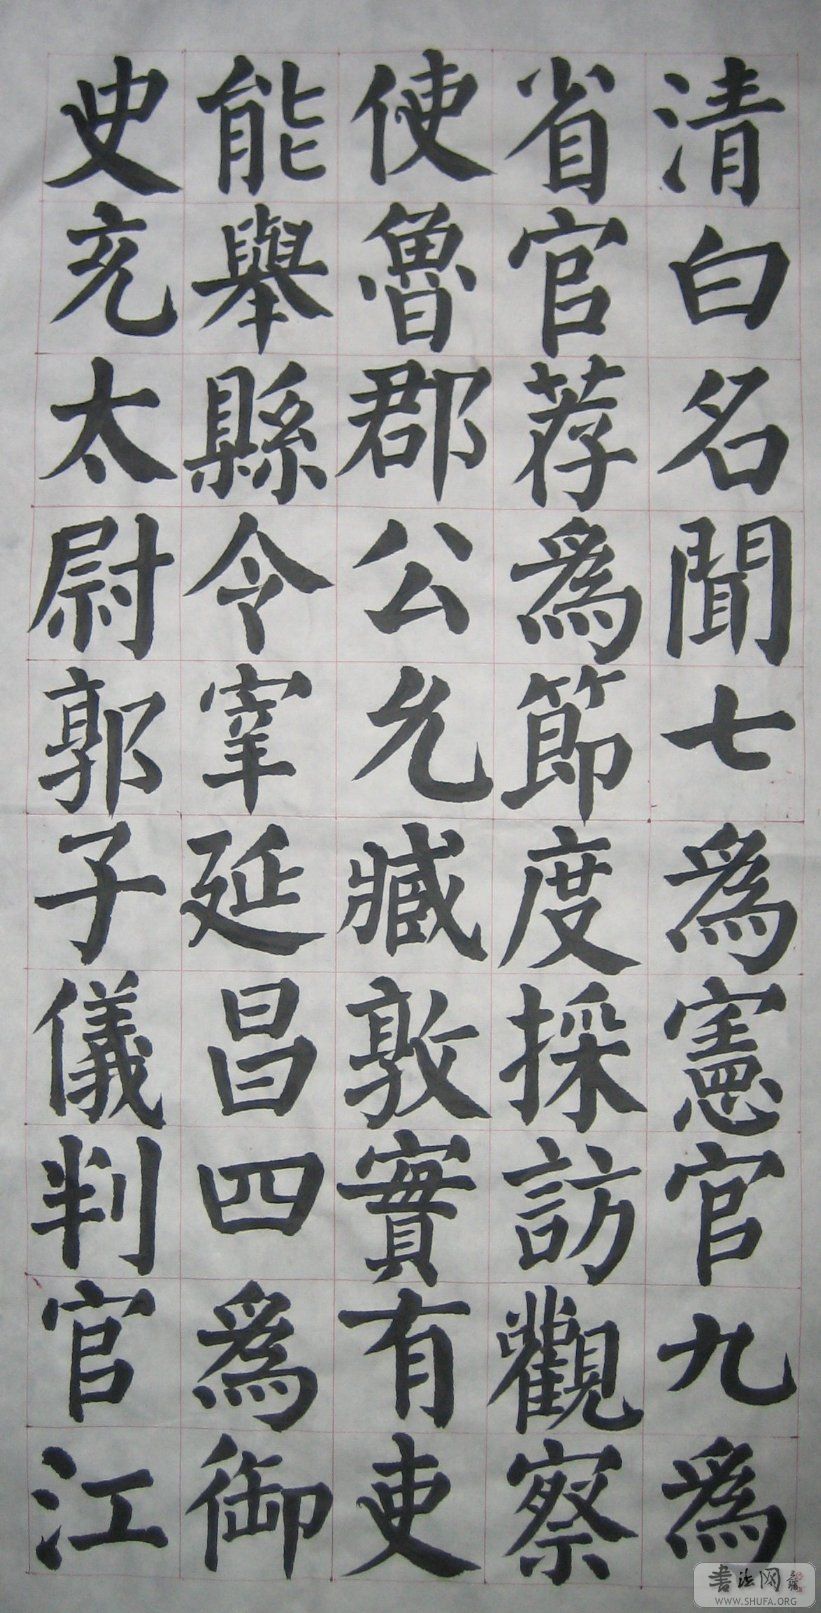 清白名聞七為憲官九為
省官荐為節度採訪觀察
使魯郡公允臧敦實有吏
能舉縣令宰延昌四為御
史充太尉郭子儀判官江
書法网
WWW.SHUFA.ORG